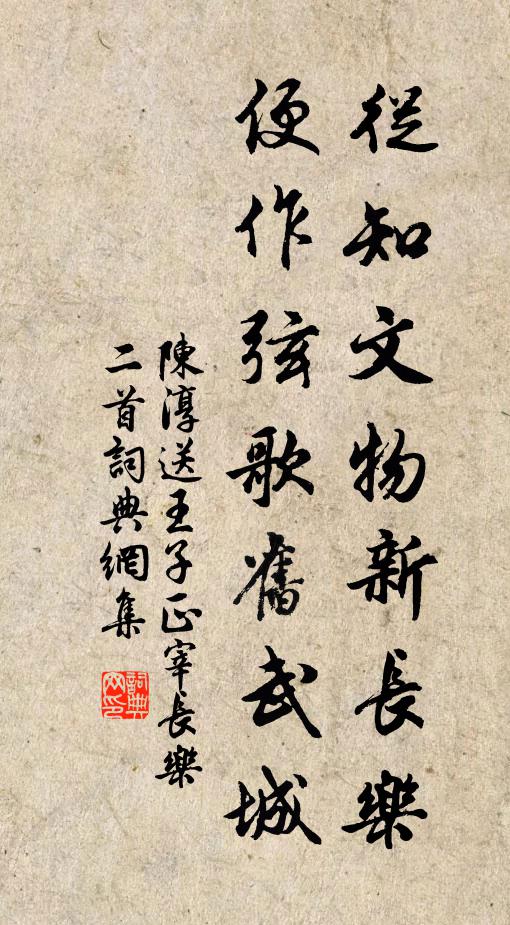 從知文物新長樂
便作弦歌舊武城
陳淳送王子正宰長樂
二首詞典網集
詞典網印